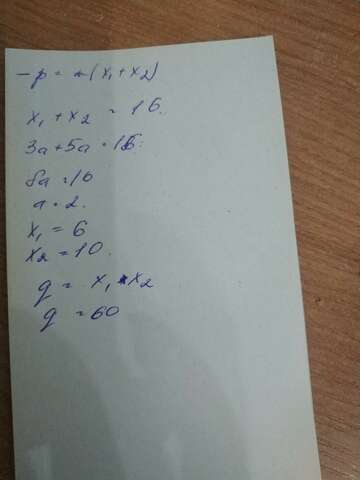 -p = -(x₁+x₂)
x₁+x₂ = 16.
3a+5a=16:
8a=16
a=2.
x₁ = 6
x₂ = 10.
q = x₁·x₂
q = 60